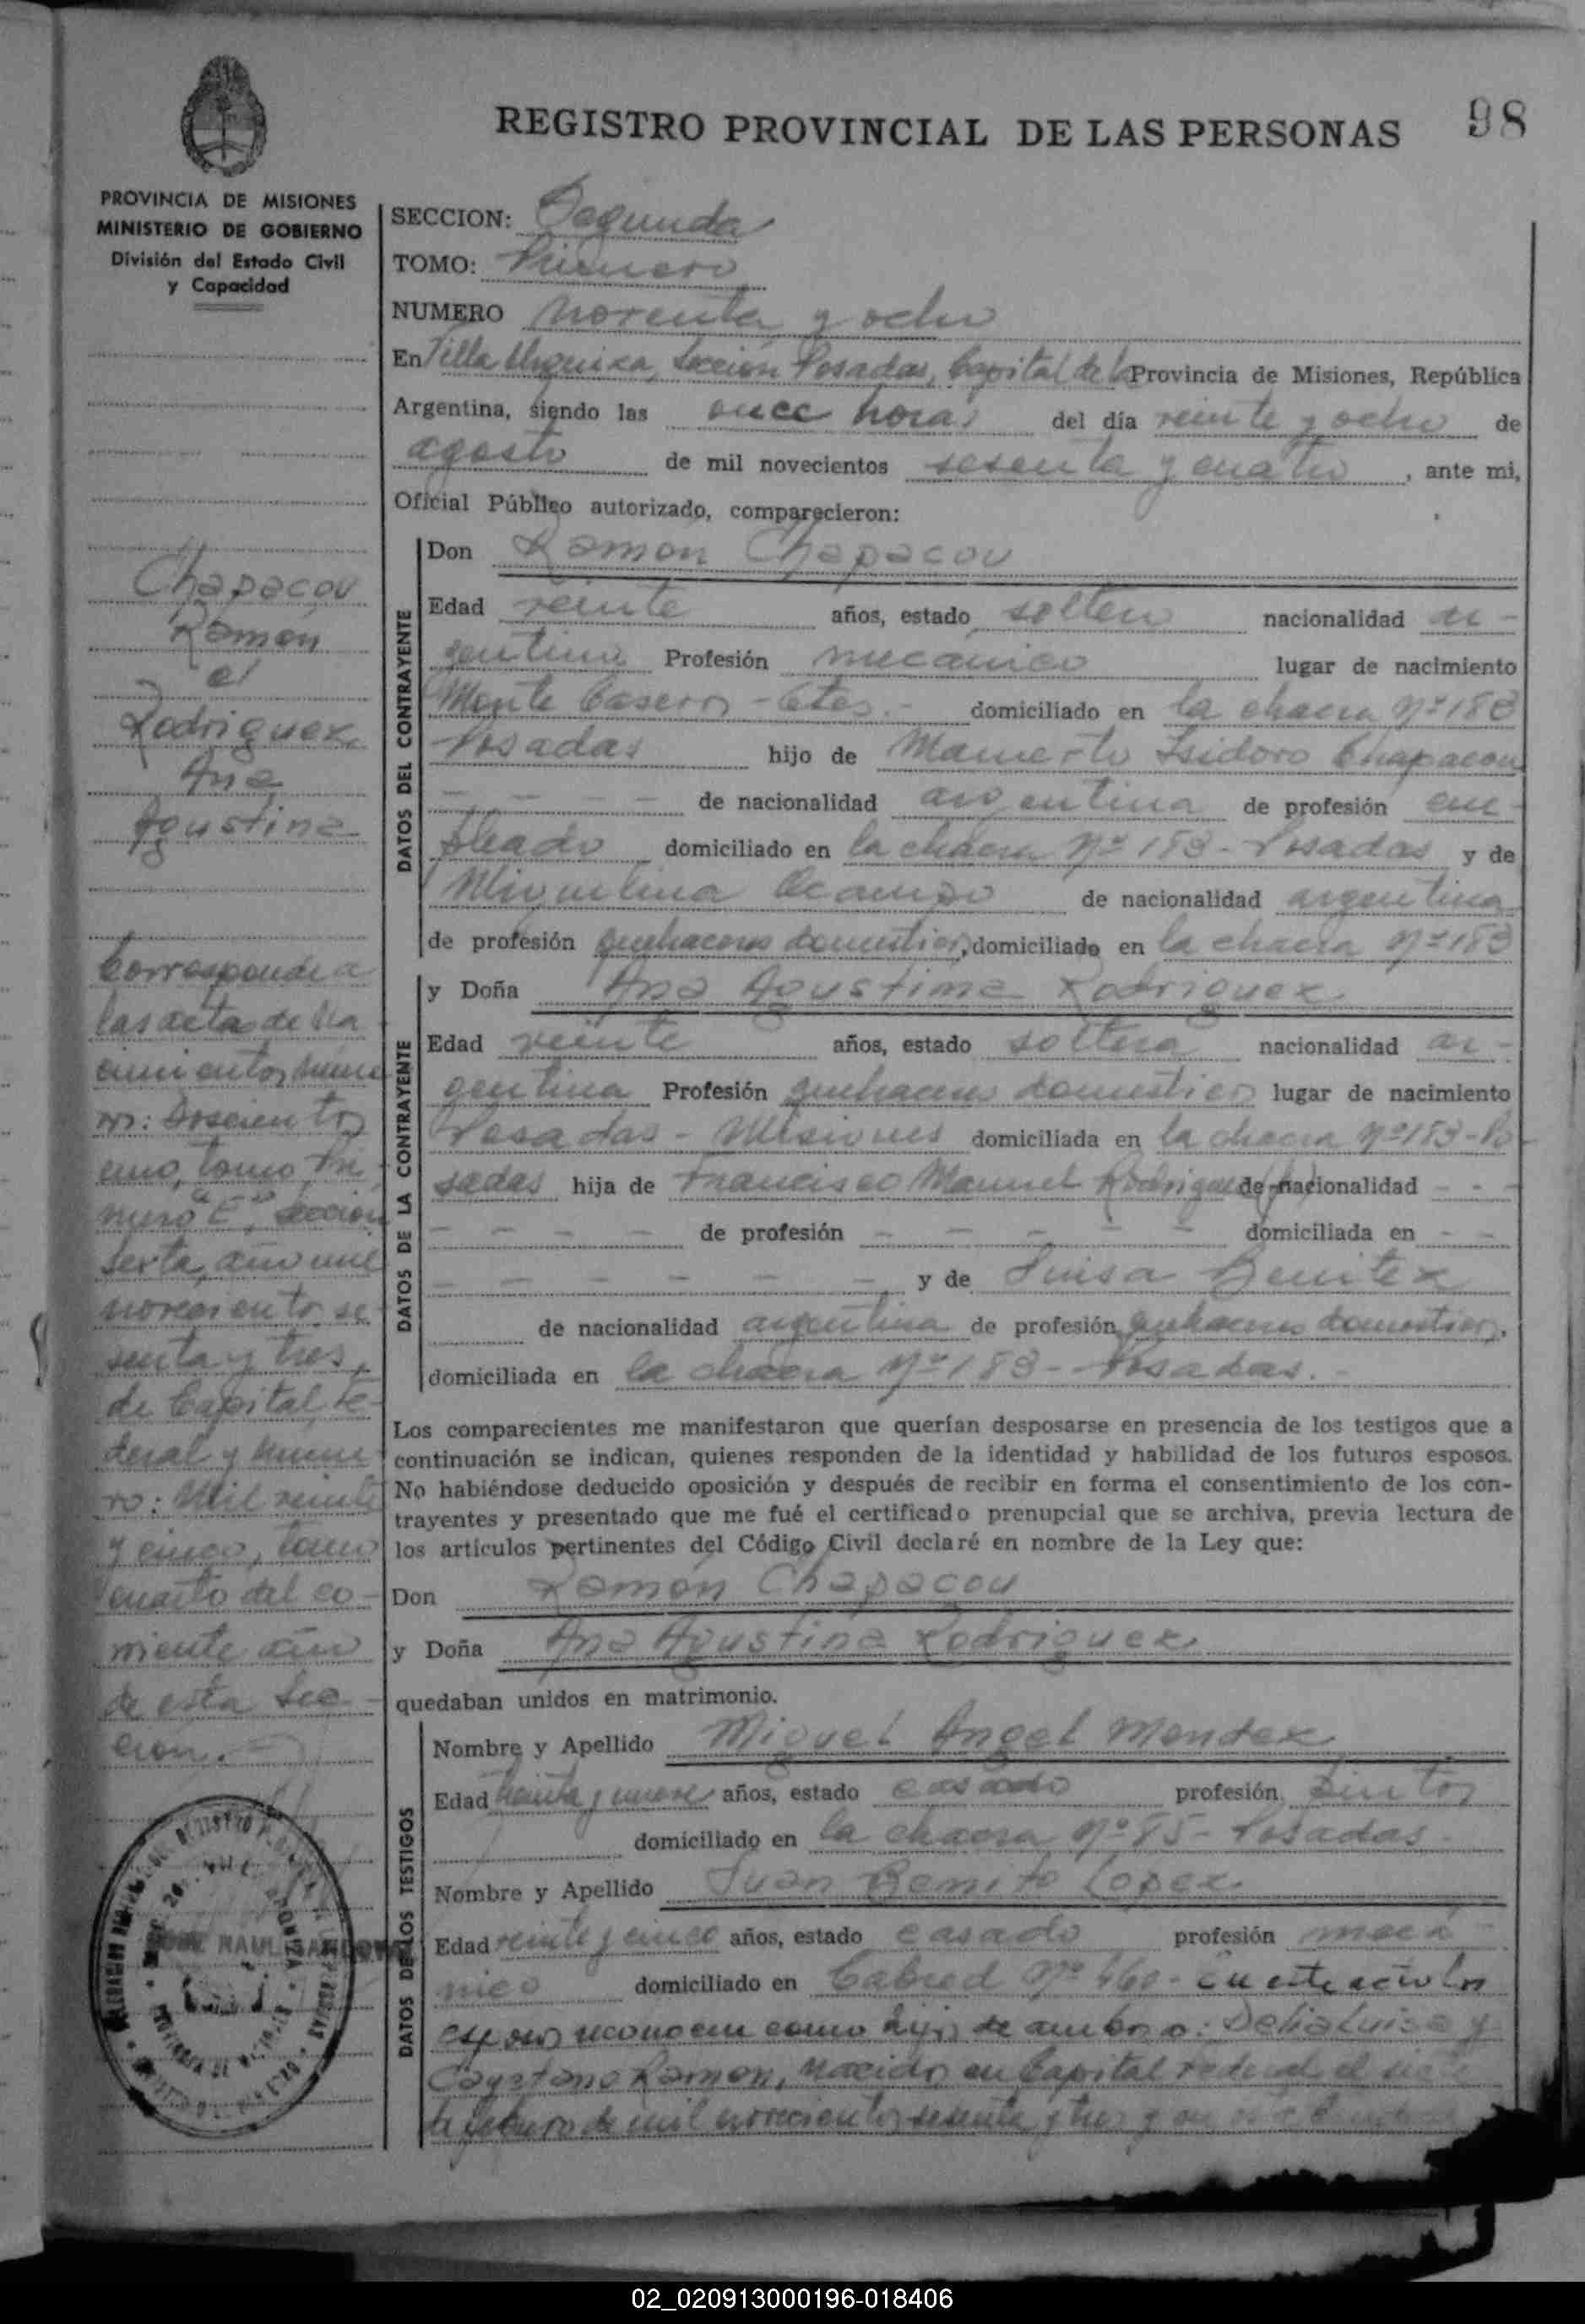 REGISTRO PROVINCIAL DE LAS PERSONAS
98
PROVINCIA DE MISIONES
MINISTERIO DE GOBIERNO
División del Estado Civil
y Capacidad
Chapacou
Ramón
c/
Rodriguez
Ana
Agustina
Corresponde a
las actas de Na
cimientos núme
ros: doscientos
uno, tomo Pri
mero "E", sección
sexta, año mil
novecientos se
senta y tres,
de Capital Fe-
deral y núme
ro: Mil veinte
y cinco, tomo
cuarto del co-
rriente año
de esta Sec-
ción.
SECCION: Segunda
TOMO: Primero
NUMERO noventa y ocho
En Villa Urquiza, Sección Posadas, Capital de la Provincia de Misiones, República
Argentina, siendo las once horas del día veinte y ocho de
agosto de mil novecientos sesenta y cuatro, ante mi,
Oficial Público autorizado, comparecieron:
DATOS DEL CONTRAYENTE
Don Ramon Chapacou
Edad veinte años, estado soltero nacionalidad ar-
gentina Profesión mecanico lugar de nacimiento
Monte Caseros - Ctes. - domiciliado en la chacra Nº 183
Posadas hijo de Mamerto Isidoro Chapacou
- - - - de nacionalidad argentina de profesión em-
pleado domiciliado en la chacra Nº 183 - Posadas y de
Miguelina Ocampo de nacionalidad argentina
de profesión quehaceres domesticos, domiciliado en la chacra Nº 183
DATOS DE LA CONTRAYENTE
y Doña Ana Agustina Rodriguez
Edad veinte años, estado soltera nacionalidad ar-
gentina Profesión quehaceres domesticos lugar de nacimiento
Posadas - Misiones domiciliada en la chacra Nº 183 - Po-
sadas hija de Francisco Manuel Rodriguez de nacionalidad - - -
- - - - de profesión - - - - domiciliada en - -
- - - - - - y de Luisa Benitez
de nacionalidad argentina de profesión quehaceres domesticos,
domiciliada en la chacra Nº 183 - Posadas. -
Los comparecientes me manifestaron que querían desposarse en presencia de los testigos que a
continuación se indican, quienes responden de la identidad y habilidad de los futuros esposos.
No habiéndose deducido oposición y después de recibir en forma el consentimiento de los con-
trayentes y presentado que me fué el certificado prenupcial que se archiva, previa lectura de
los artículos pertinentes del Código Civil declaré en nombre de la Ley que:
Don Ramón Chapacou
y Doña Ana Agustina Rodriguez
quedaban unidos en matrimonio.
DATOS DE LOS TESTIGOS
Nombre y Apellido Miguel Angel Mendez
Edad treinta y nueve años, estado casado profesión pintor
domiciliado en la chacra Nº 85 - Posadas.
Nombre y Apellido Juan Benito Lopez
Edad veinte y cinco años, estado casado profesión mecá-
nico domiciliado en Cabred Nº 460 - En este acto los
esposos reconocen como hijos de ambos a: Delia Luisa y
Cayetano Ramon, nacidos en Capital Federal el siete
de febrero de mil novecientos sesenta y tres y
02_020913000196-018406